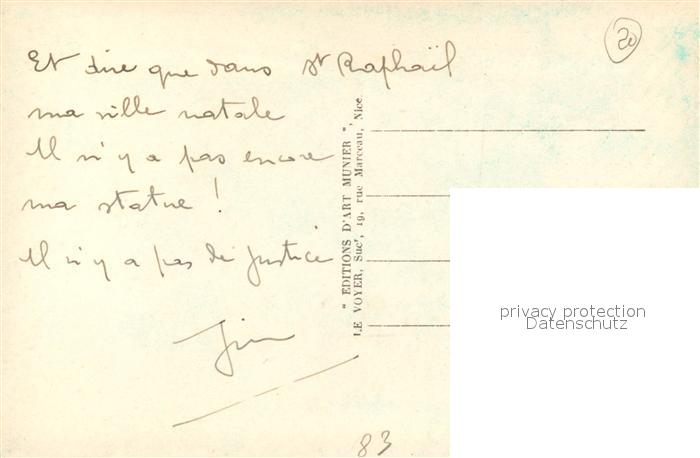 Et dire que dans St Raphaël
ma ville natale
Il n'y a pas encore
ma statue !
Il n'y a pas de justice
Jim
20
83
" EDITIONS D'ART MUNIER ",
LE VOYER, Sucr, 19, rue Marceau, Nice.
privacy protection
Datenschutz